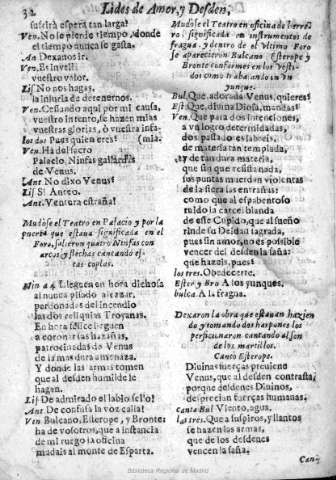 32
Lides de Amor, y Desden,
suelirà espera tan larga?
Ven. No se pierde tiempo, donde
el tiempo nunca se gasta.
An Dexanos ir.
Ven.
vuestro valor.
Lis No nos hagas,
la injuria de detenernos.
Ven. Cessando aqui por mi causa,
vuestro intento, se hazen mias
vuestras glorias, ò vuestra infa-
los dos Pues quien eres (mia.
Ven. Ha del sacro
Palacio, Ninfas gallardas
de Venus.
Ant No dixo Venus?
Lis Sì Anteo.
Ant. Ventura estraña!
Mudase el Teatro en Palacio y por la
puerta que estaua significada en el
Foro, salieron quatro Ninfas con
arcos, y flechas cantando es-
tas coplas.
Min a 4. Lleguen en hora dichosa
al nunca piudo alcançar,
perdonadas del incendio
las dos reliquias Troyanas.
En hora felice lleguen
a coronar las hazañas,
patrocinadas de Venus
de la mas dura amenaza.
Y donde las armas tomen
que al desden humilde le
hagan.
Lis De admirado el labio sello!
An De confusa la voz calla!
Ven Bulcano, Esterope, y Bronte:
ha de vosotros, que a instancia
de mi ruego la oficina
mudais al monte de Esparta.
Mudose el Teatro en oficina de herre-
ro significada en instrumentos de
fragua. y dentro de el Vltimo Foro
se aparecieron Bulcano Esterope y
Bronte conformes en los vesti-
dos como trabajando en vn
yunque.
Bul. Que, adorada Venus, quieres?
Est Que, diuina Diosa, mandas?
Ven. Que para dos intenciones,
a vn logro determinadas,
dos puñales escabreis,
de materia tan templada,
y de tan dura materia,
que sin que resista nada,
sus puntas muerdan violentas
de la fiera las entrañas:
como que al espabentoso
ruido la carcel blanda
de este Cupido, que al sueño
rinde su Deidad sagrada,
pues sin amor, no es possible
vencer del desden la saña:
que hazeis, pues?
los tres. Obedecerte.
Ester y Bro A los yunques.
bulca. A la fragua.
Dexaron la obra que estauan hazien
do y tomando dos harpones los
perficionaron cantando al son
de los martillos.
Canto Esterope.
Diuinas fuerças preuiene
Venus, que al desden contrasta,
porque desdenes Diuinos,
desprecian fuerças humanas,
Canta Bul Viento, agua,
los tres. Que a suspiros, y llantos
se hazen los armas,
que de los desdenes
vencen la saña.
Can-
Biblioteca Regional de Madrid